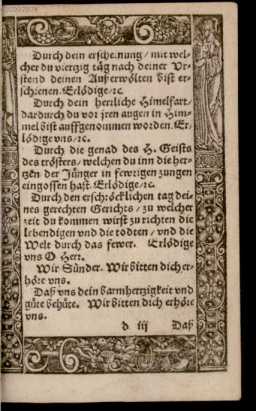 Durch dein erscheinung / mit wel-
cher du viertzig tag nach deiner Vr-
stend deinen Außerwölten bist er-
schienen. Erlödige / ⁊c.
Durch dein herrliche Himelfart /
dardurch du vor jren augen in Him-
mel bist auffgenommen worden. Er-
lödige vns / ⁊c.
Durch die genad des H. Geists
des trösters / welchen du inn die her-
tzen der Jünger in fewrigen zungen
eingossen hast. Erlödige / ⁊c.
Durch den erschröcklichen tag dei-
nes gerechten Gerichts / zu welcher
zeit du kommen wirst zu richten die
lebendigen vnd die todten / vnd die
Welt durch das fewer. Erlödige
vns O Herr.
Wir Sünder. Wir bitten dich er-
höre vns.
Daß vns dein barmhertzigkeit vnd
güte behüte. Wir bitten dich erhöre
vns.
d iij Daß